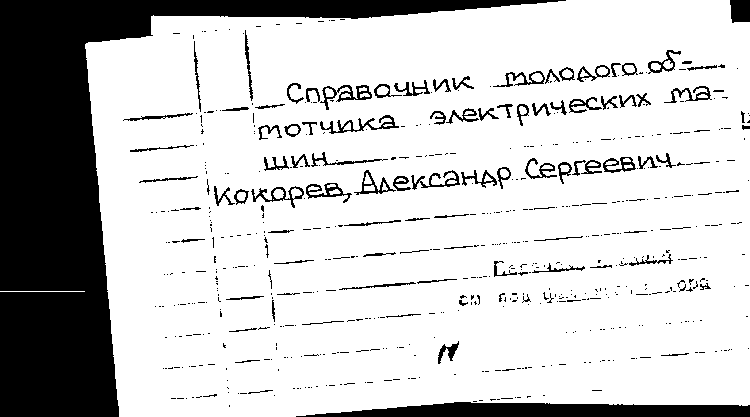 Справочник молодого об-
мотчика электрических ма-
шин
Кокорев, Александр Сергеевич.
см под